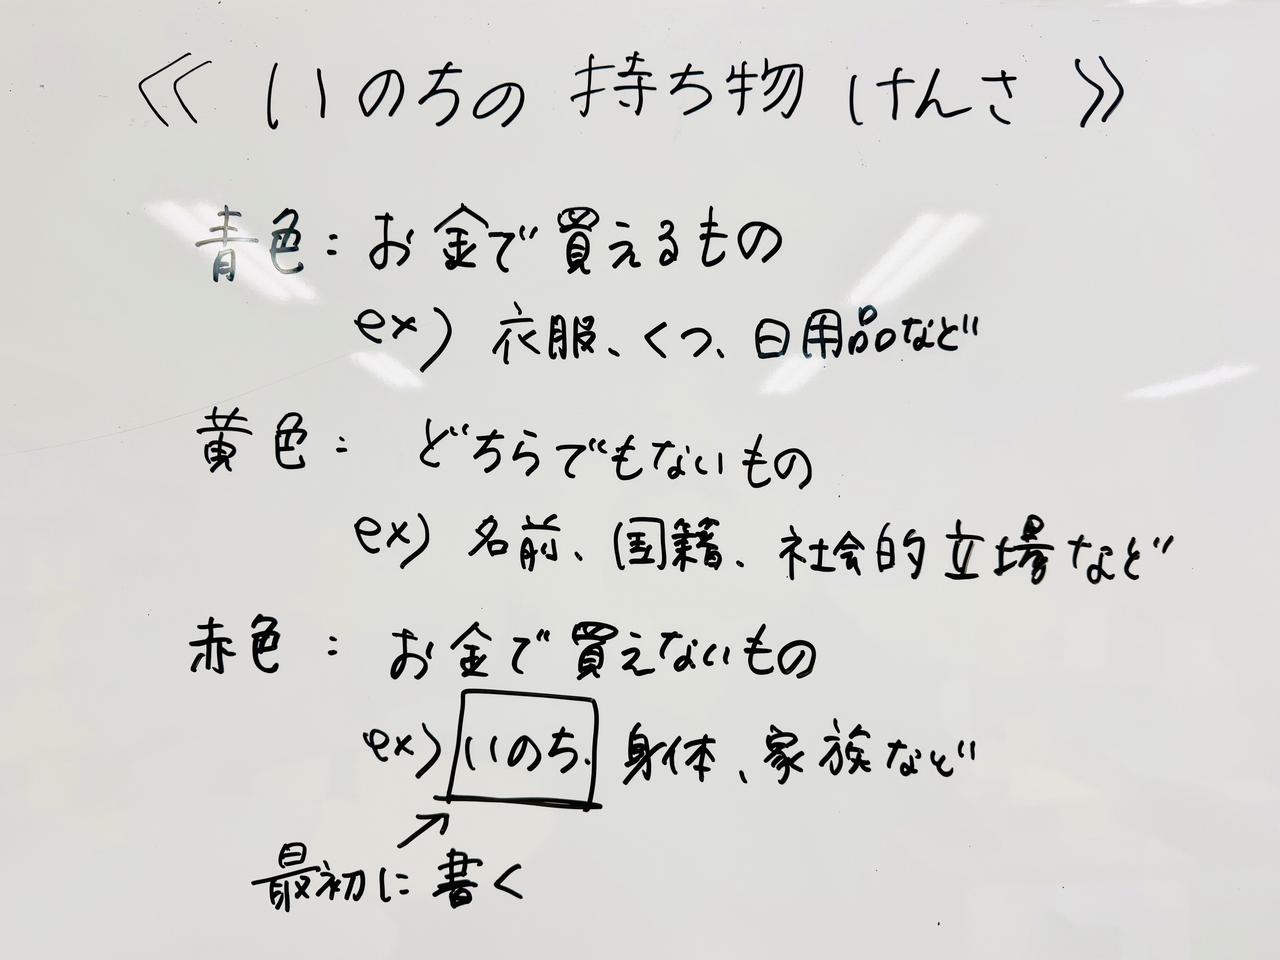 ≪ いのちの持ち物けんさ ≫
青色：お金で買えるもの
ex) 衣服、くつ、日用品など
黄色：どちらでもないもの
ex) 名前、国籍、社会的立場など
赤色：お金で買えないもの
ex) いのち、身体、家族など
最初に書く